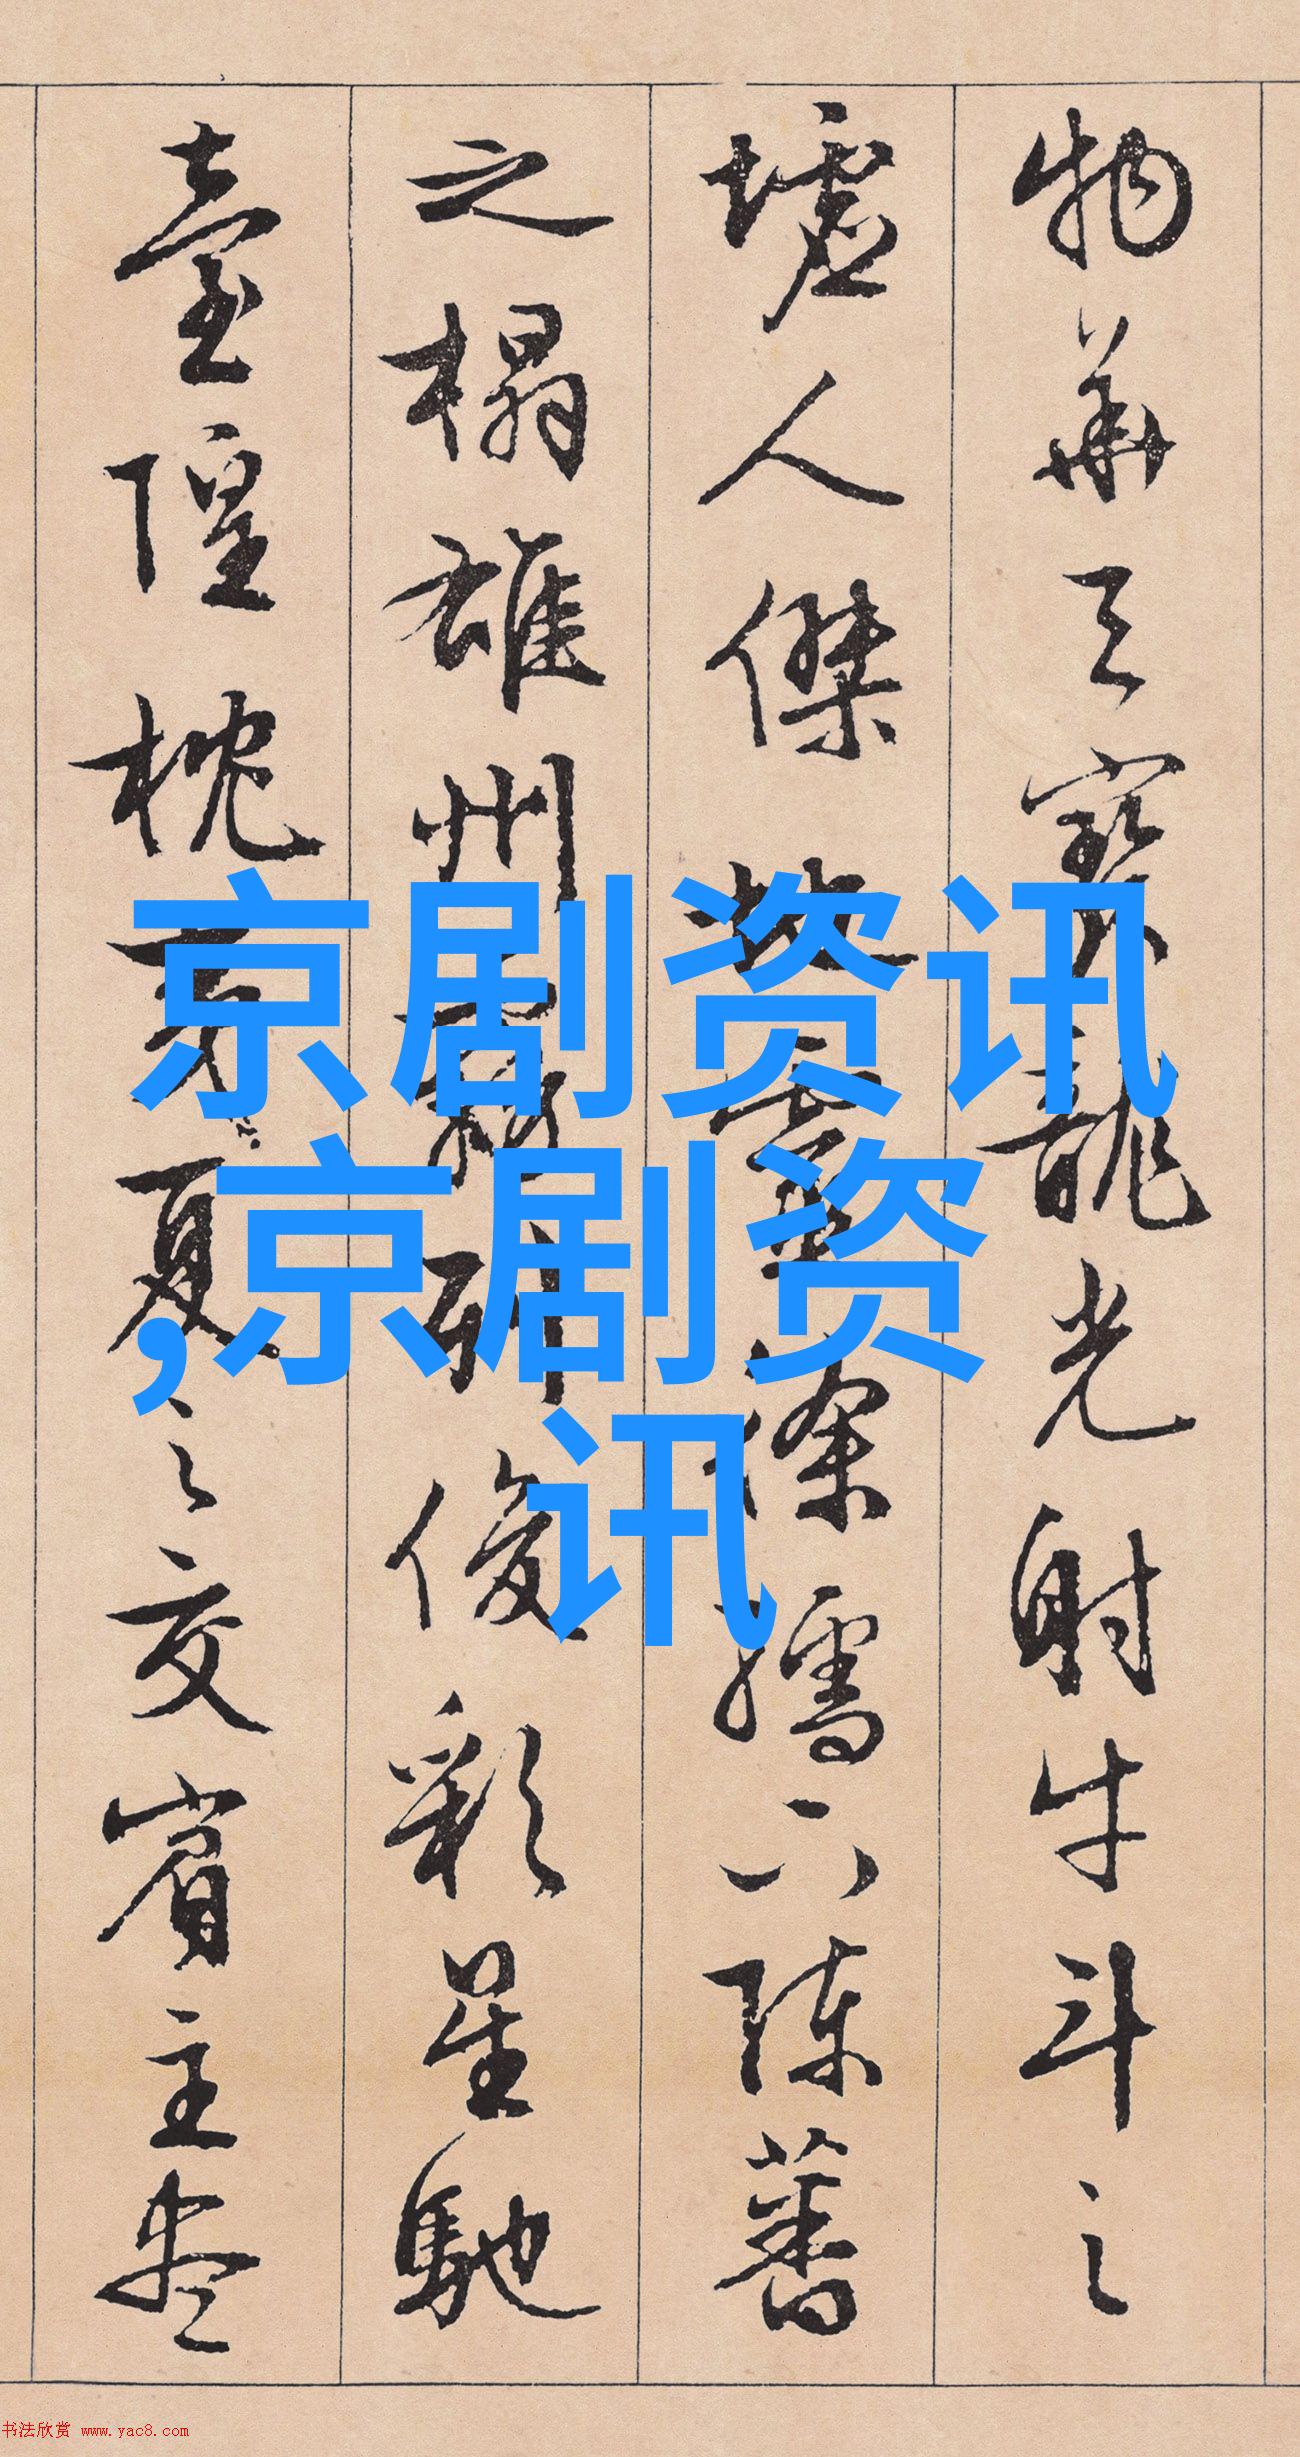 物華天寶龍光射牛斗之
墟人傑地靈徐孺下陳蕃
之榻雄州霧列俊彩星馳
臺隍枕夷夏之交賓主盡
京剧资讯
,京剧资
讯
书法欣赏 www.yac8.com